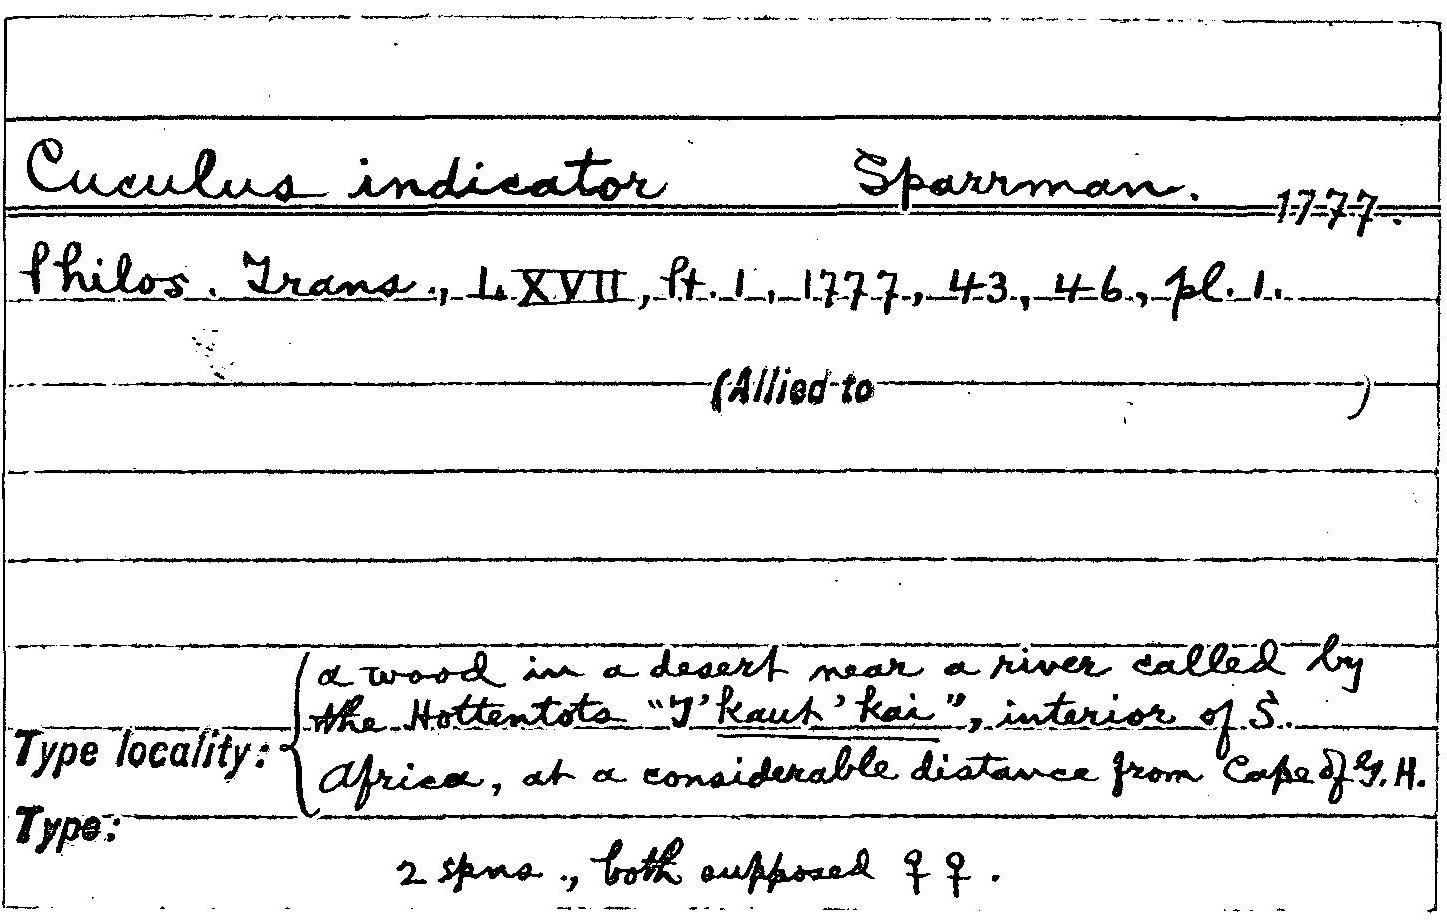 Cuculus indicator Sparrman. 1777.
Philos. Trans., LXVII, Pt. 1, 1777, 43, 46, pl. 1.
(Allied to )
a wood in a desert near a river called by
the Hottentots "T'kaut'kai", interior of S.
Type locality: Africa, at a considerable distance from Cape of G. H.
Type:
2 spns., both supposed ♀ ♀.